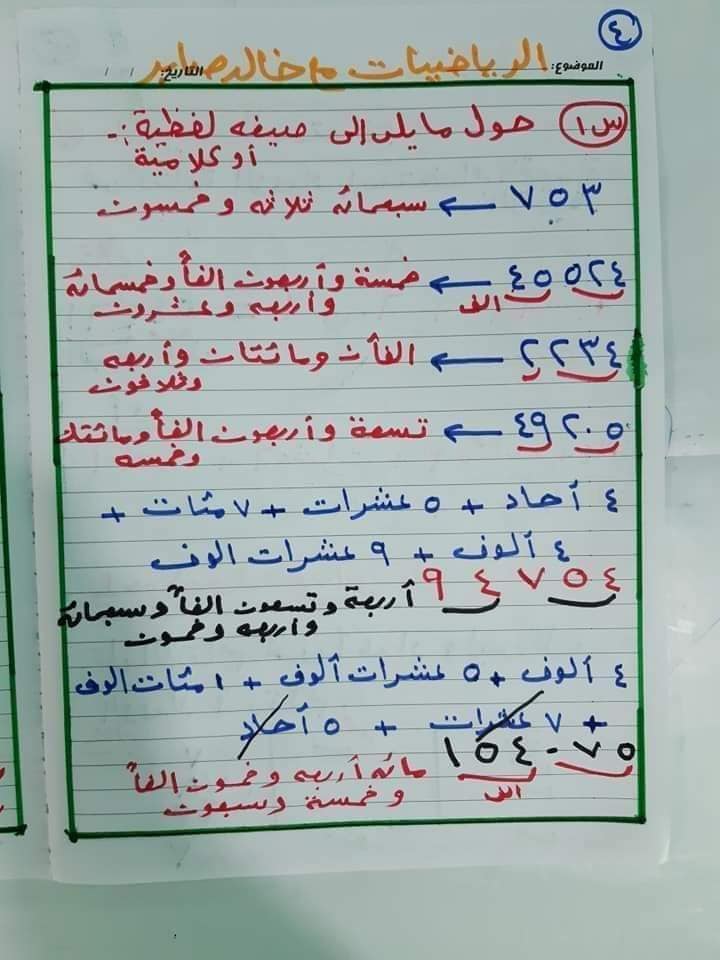 ٤
الرياضيات م خالد صابر
الموضوع: التاريخ: / /
س١ حول ما يلى الى صيغه لفظية :-
أو كلامية
٧٥٣ ← سبعمائه ثلاثه وخمسون
٤٥٥٢٤ ← خمسة وأربعون الفاً وخمسمائه
الف وأربعه وعشرون
٢٢٣٤ ← الفان ومائتان وأربعه
وثلاثون
٤٩٢٠٥ ← تسعة وأربعون الفاً ومائتان
وخمسه
٤ أحاد + ٥ عشرات + ٧ مئات +
٤ ألوف + ٩ عشرات الوف
٩٤٧٥٤ أربعة وتسعون الفاً وسبعمائة
وأربعه وخمسون
٤ ألوف + ٥ عشرات ألوف + ١ مئات الوف
+ ٧ عشرات + ٥ أحاد
١٥٤٠٧٥ مائه أربعه وخمسون الفاً
الف وخمسة وسبعون